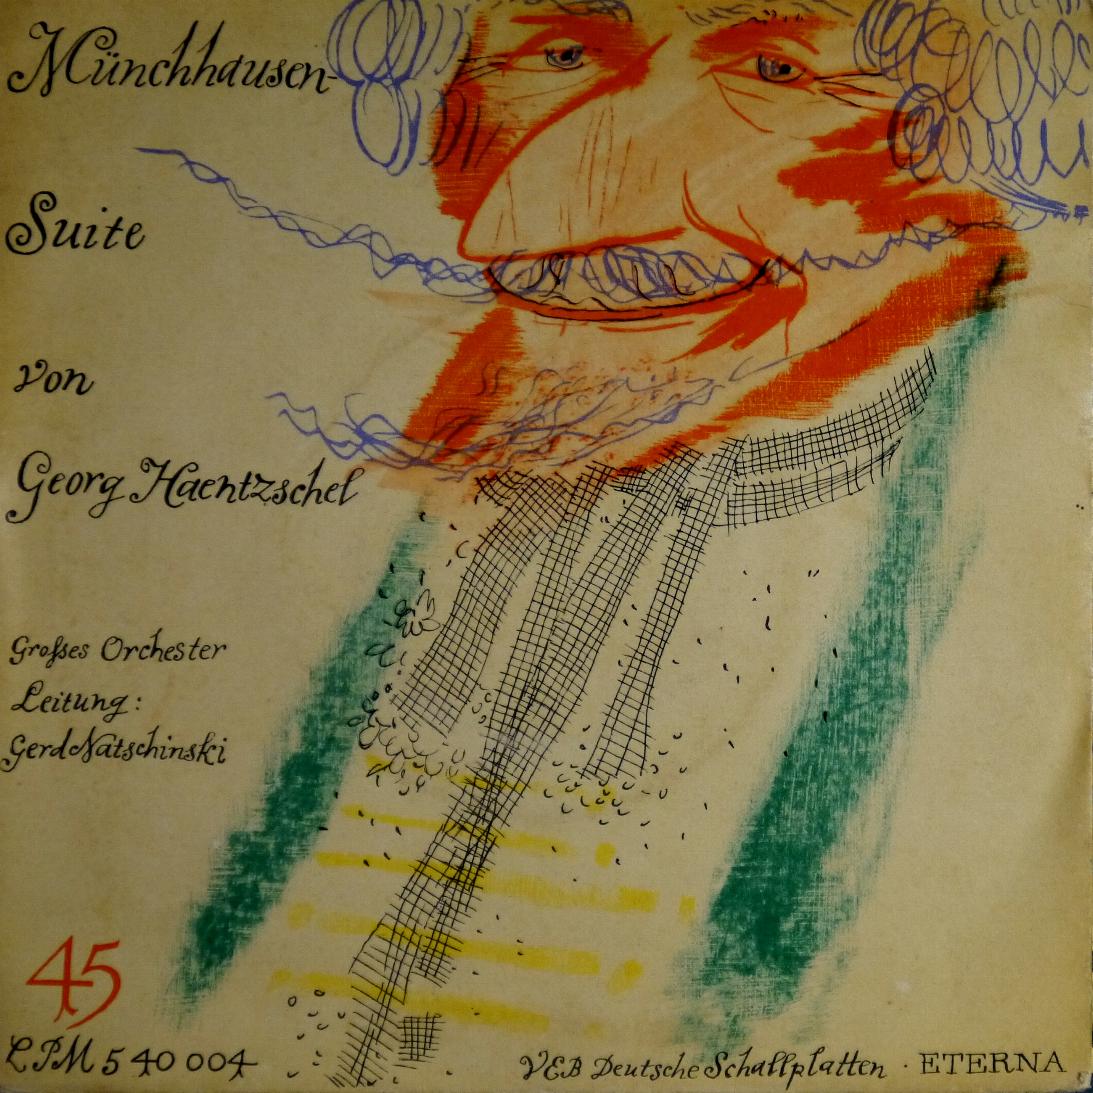 Münchhausen-
Suite
von
Georg Haentzschel
Großes Orchester
Leitung:
Gerd Natschinski
45
LPM 540 004
VEB Deutsche Schallplatten · ETERNA